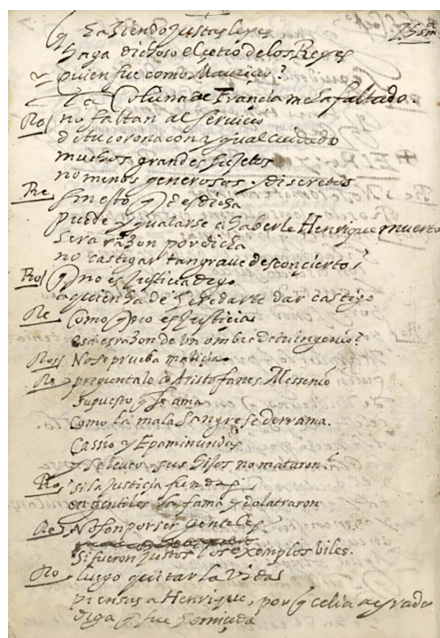 q haziendo justas leyes
haga dichoso el cetro de los Reyes
quien fue como Mauricio?
la Coluna de Francia me ha faltado.
Ro no faltan al servicio
de tu corona con ygual cuidado
muchos grandes sujetos
no menos generosos y discretos
Re siniesto q desdicha
puede ygualarse a haberle Henrique muerto
sera razon por dicha
no castigar tan graue desconcierto?
Ro q no es justicia digo
a quien ha de heredarte dar castigo
Re Como q no es justicia
esa es razon de un ombre de tu ingenio?
Ros No se prueba malicia
Re preguntalo a Aristofanes Messenio
supuesto q se ama
Como la mala sangre se derrama.
Cassio y Epaminundas
y Seleuco sus hijos no mataron?
Ro si la justicia fundas
en gentiles la fama ydolatraron
Re No son por ser gentiles
si fueron justos los exemplos viles.
Ro luego quitar la vida
piensas a Henrique, por q Celia agrauada
diga q fue